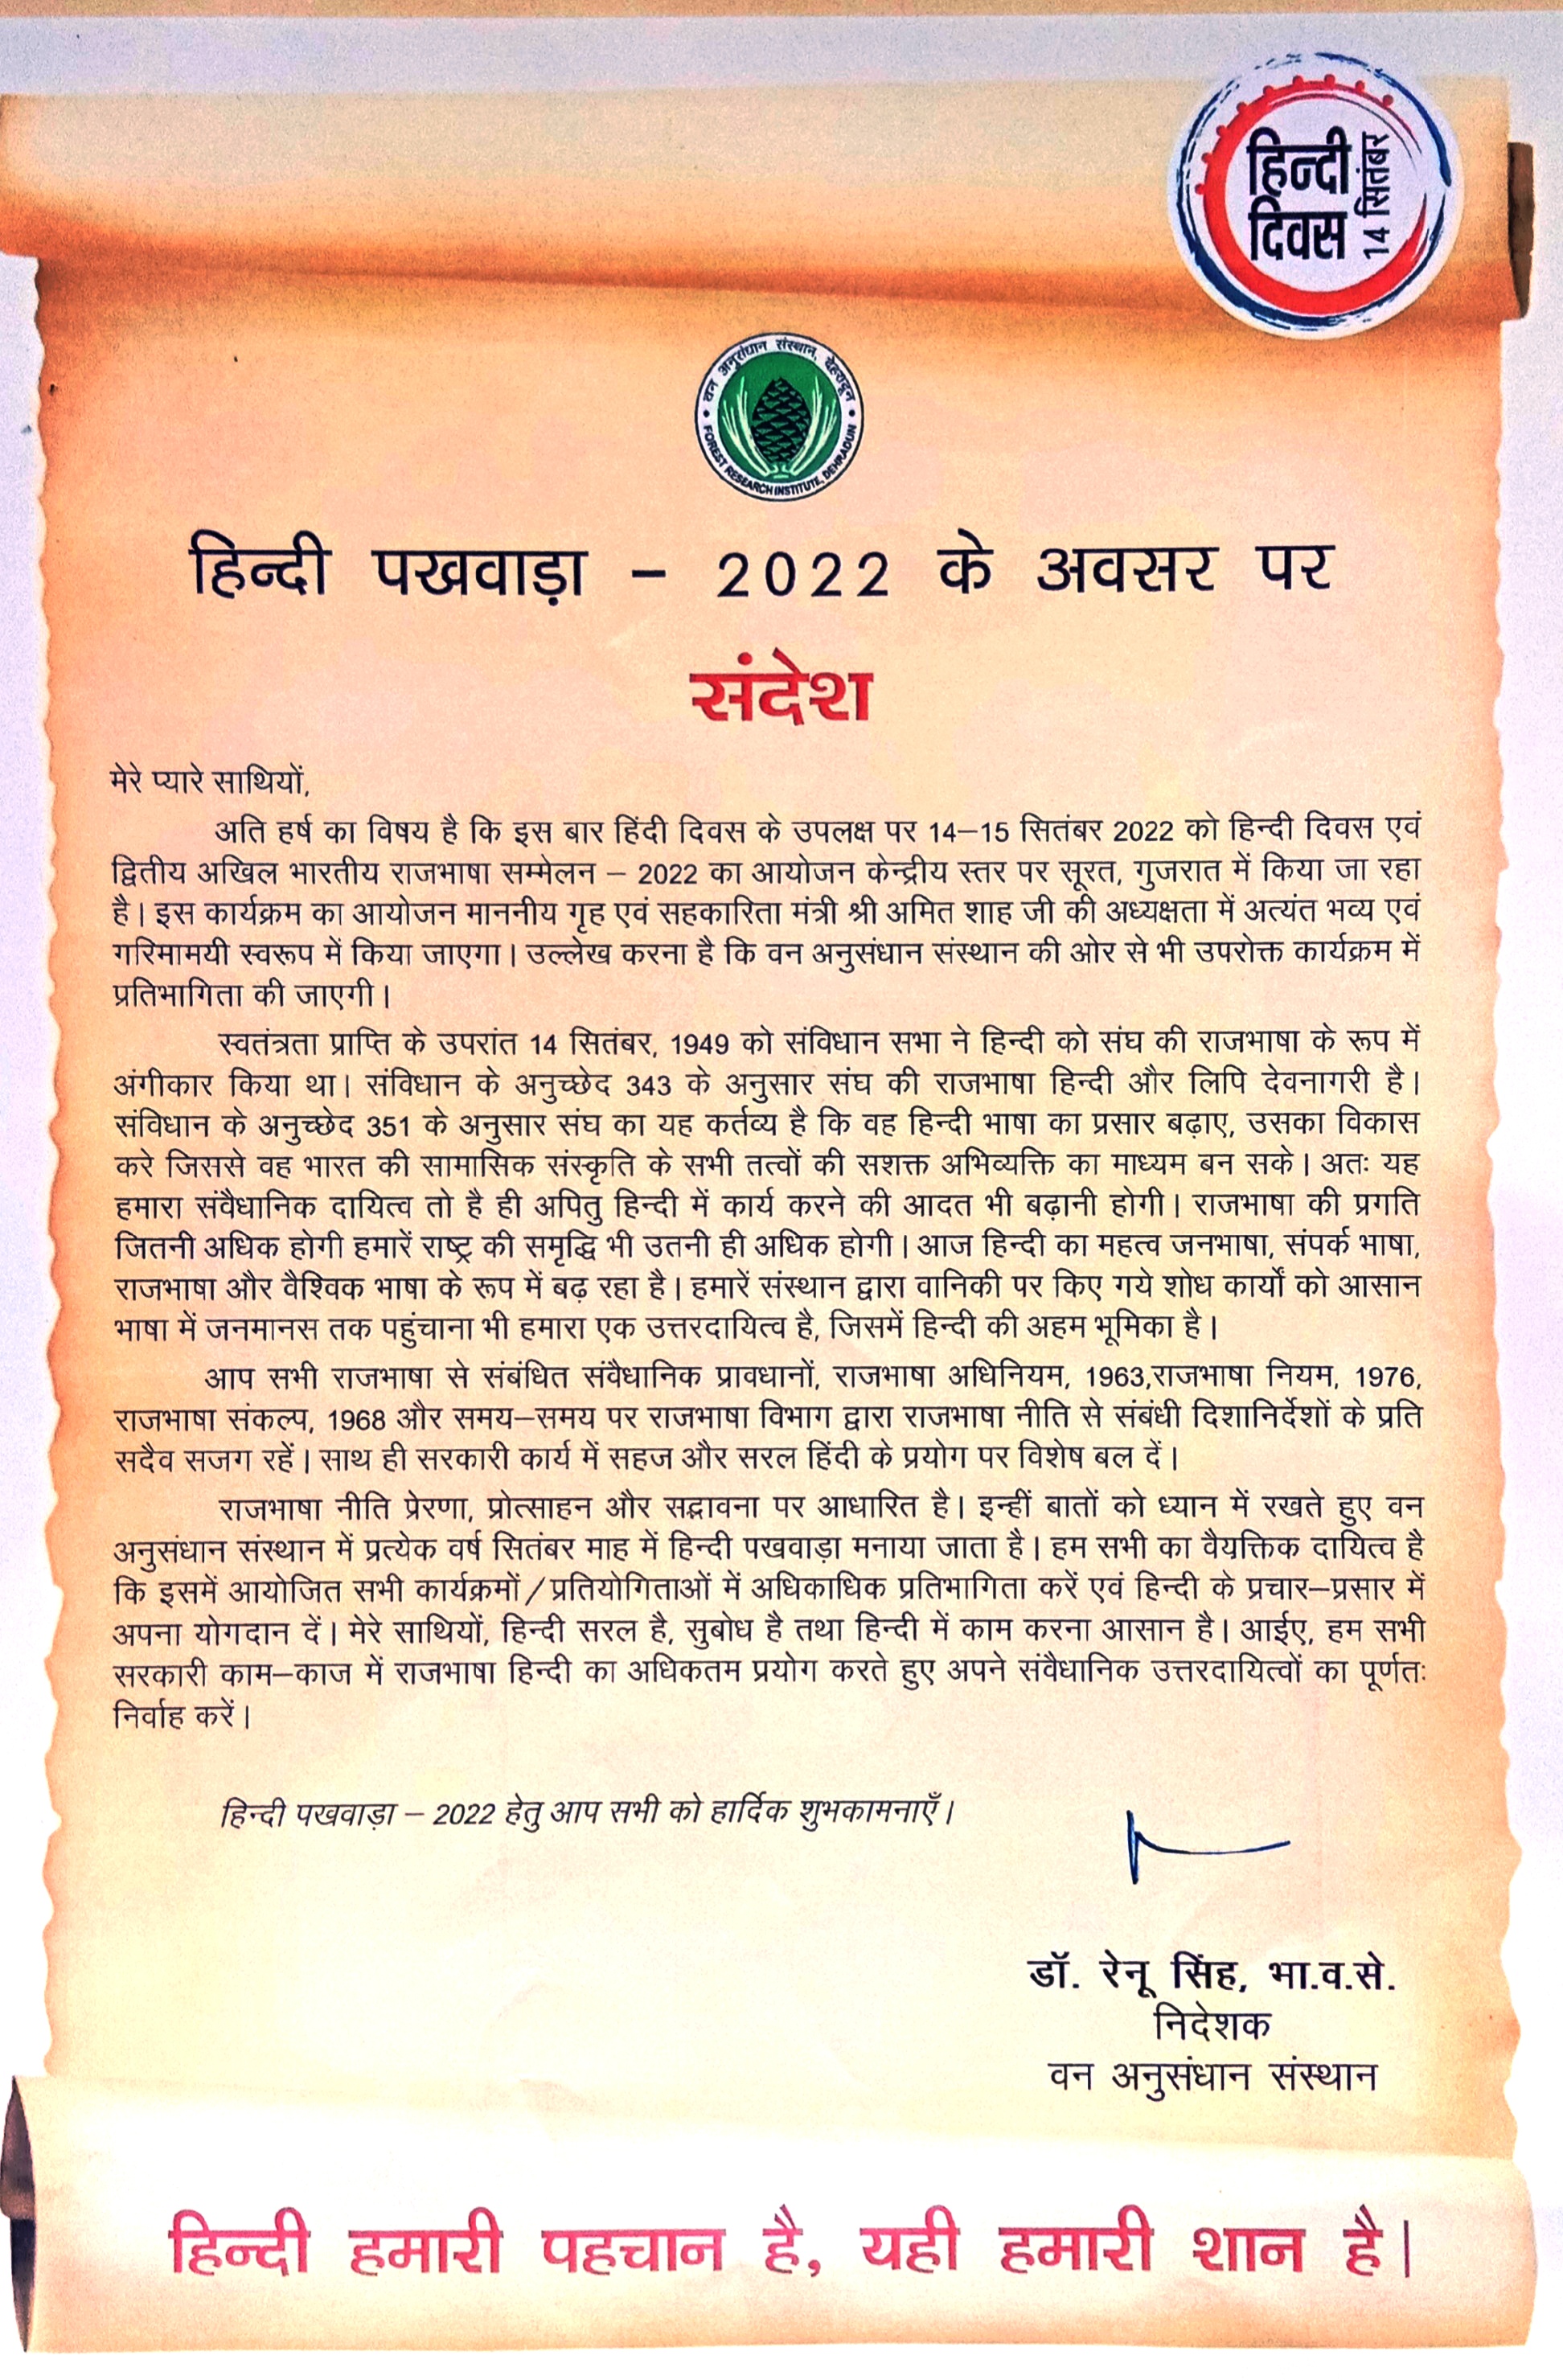 हिन्दी
दिवस
14 सितंबर
वन अनुसंधान संस्थान, देहरादून
FOREST RESEARCH INSTITUTE, DEHRADUN
हिन्दी पखवाड़ा – 2022 के अवसर पर
संदेश
मेरे प्यारे साथियों,
अति हर्ष का विषय है कि इस बार हिंदी दिवस के उपलक्ष पर 14–15 सितंबर 2022 को हिन्दी दिवस एवं
द्वितीय अखिल भारतीय राजभाषा सम्मेलन – 2022 का आयोजन केन्द्रीय स्तर पर सूरत, गुजरात में किया जा रहा
है। इस कार्यक्रम का आयोजन माननीय गृह एवं सहकारिता मंत्री श्री अमित शाह जी की अध्यक्षता में अत्यंत भव्य एवं
गरिमामयी स्वरूप में किया जाएगा। उल्लेख करना है कि वन अनुसंधान संस्थान की ओर से भी उपरोक्त कार्यक्रम में
प्रतिभागिता की जाएगी।
स्वतंत्रता प्राप्ति के उपरांत 14 सितंबर, 1949 को संविधान सभा ने हिन्दी को संघ की राजभाषा के रूप में
अंगीकार किया था। संविधान के अनुच्छेद 343 के अनुसार संघ की राजभाषा हिन्दी और लिपि देवनागरी है।
संविधान के अनुच्छेद 351 के अनुसार संघ का यह कर्तव्य है कि वह हिन्दी भाषा का प्रसार बढ़ाए, उसका विकास
करे जिससे वह भारत की सामासिक संस्कृति के सभी तत्वों की सशक्त अभिव्यक्ति का माध्यम बन सके। अतः यह
हमारा संवैधानिक दायित्व तो है ही अपितु हिन्दी में कार्य करने की आदत भी बढ़ानी होगी। राजभाषा की प्रगति
जितनी अधिक होगी हमारें राष्ट्र की समृद्धि भी उतनी ही अधिक होगी। आज हिन्दी का महत्व जनभाषा, संपर्क भाषा,
राजभाषा और वैश्विक भाषा के रूप में बढ़ रहा है। हमारें संस्थान द्वारा वानिकी पर किए गये शोध कार्यों को आसान
भाषा में जनमानस तक पहुंचाना भी हमारा एक उत्तरदायित्व है, जिसमें हिन्दी की अहम भूमिका है।
आप सभी राजभाषा से संबंधित संवैधानिक प्रावधानों, राजभाषा अधिनियम, 1963,राजभाषा नियम, 1976,
राजभाषा संकल्प, 1968 और समय–समय पर राजभाषा विभाग द्वारा राजभाषा नीति से संबंधी दिशानिर्देशों के प्रति
सदैव सजग रहें। साथ ही सरकारी कार्य में सहज और सरल हिंदी के प्रयोग पर विशेष बल दें।
राजभाषा नीति प्रेरणा, प्रोत्साहन और सद्भावना पर आधारित है। इन्हीं बातों को ध्यान में रखते हुए वन
अनुसंधान संस्थान में प्रत्येक वर्ष सितंबर माह में हिन्दी पखवाड़ा मनाया जाता है। हम सभी का वैयक्तिक दायित्व है
कि इसमें आयोजित सभी कार्यक्रमों/प्रतियोगिताओं में अधिकाधिक प्रतिभागिता करें एवं हिन्दी के प्रचार–प्रसार में
अपना योगदान दें। मेरे साथियों, हिन्दी सरल है, सुबोध है तथा हिन्दी में काम करना आसान है। आईए, हम सभी
सरकारी काम–काज में राजभाषा हिन्दी का अधिकतम प्रयोग करते हुए अपने संवैधानिक उत्तरदायित्वों का पूर्णतः
निर्वाह करें।
हिन्दी पखवाड़ा – 2022 हेतु आप सभी को हार्दिक शुभकामनाएँ।
डॉ. रेनू सिंह, भा.व.से.
निदेशक
वन अनुसंधान संस्थान
हिन्दी हमारी पहचान है, यही हमारी शान है|